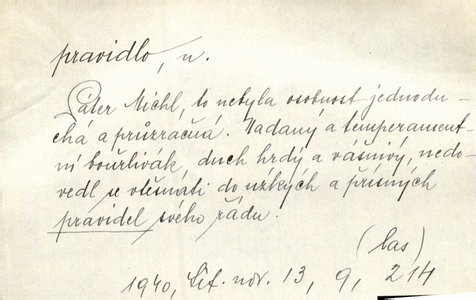 pravidlo, n.
Páter Michl, to nebyla osobnost jednodu-
chá a průzračná. Nadaný a temperament
ní bouřlivák, duch hrdý a vášnivý, nedo-
vedl se vtěsnati do úzkých a přísných
pravidel svého řádu.
(las)
1940, Lit. nov. 13, 9, 214